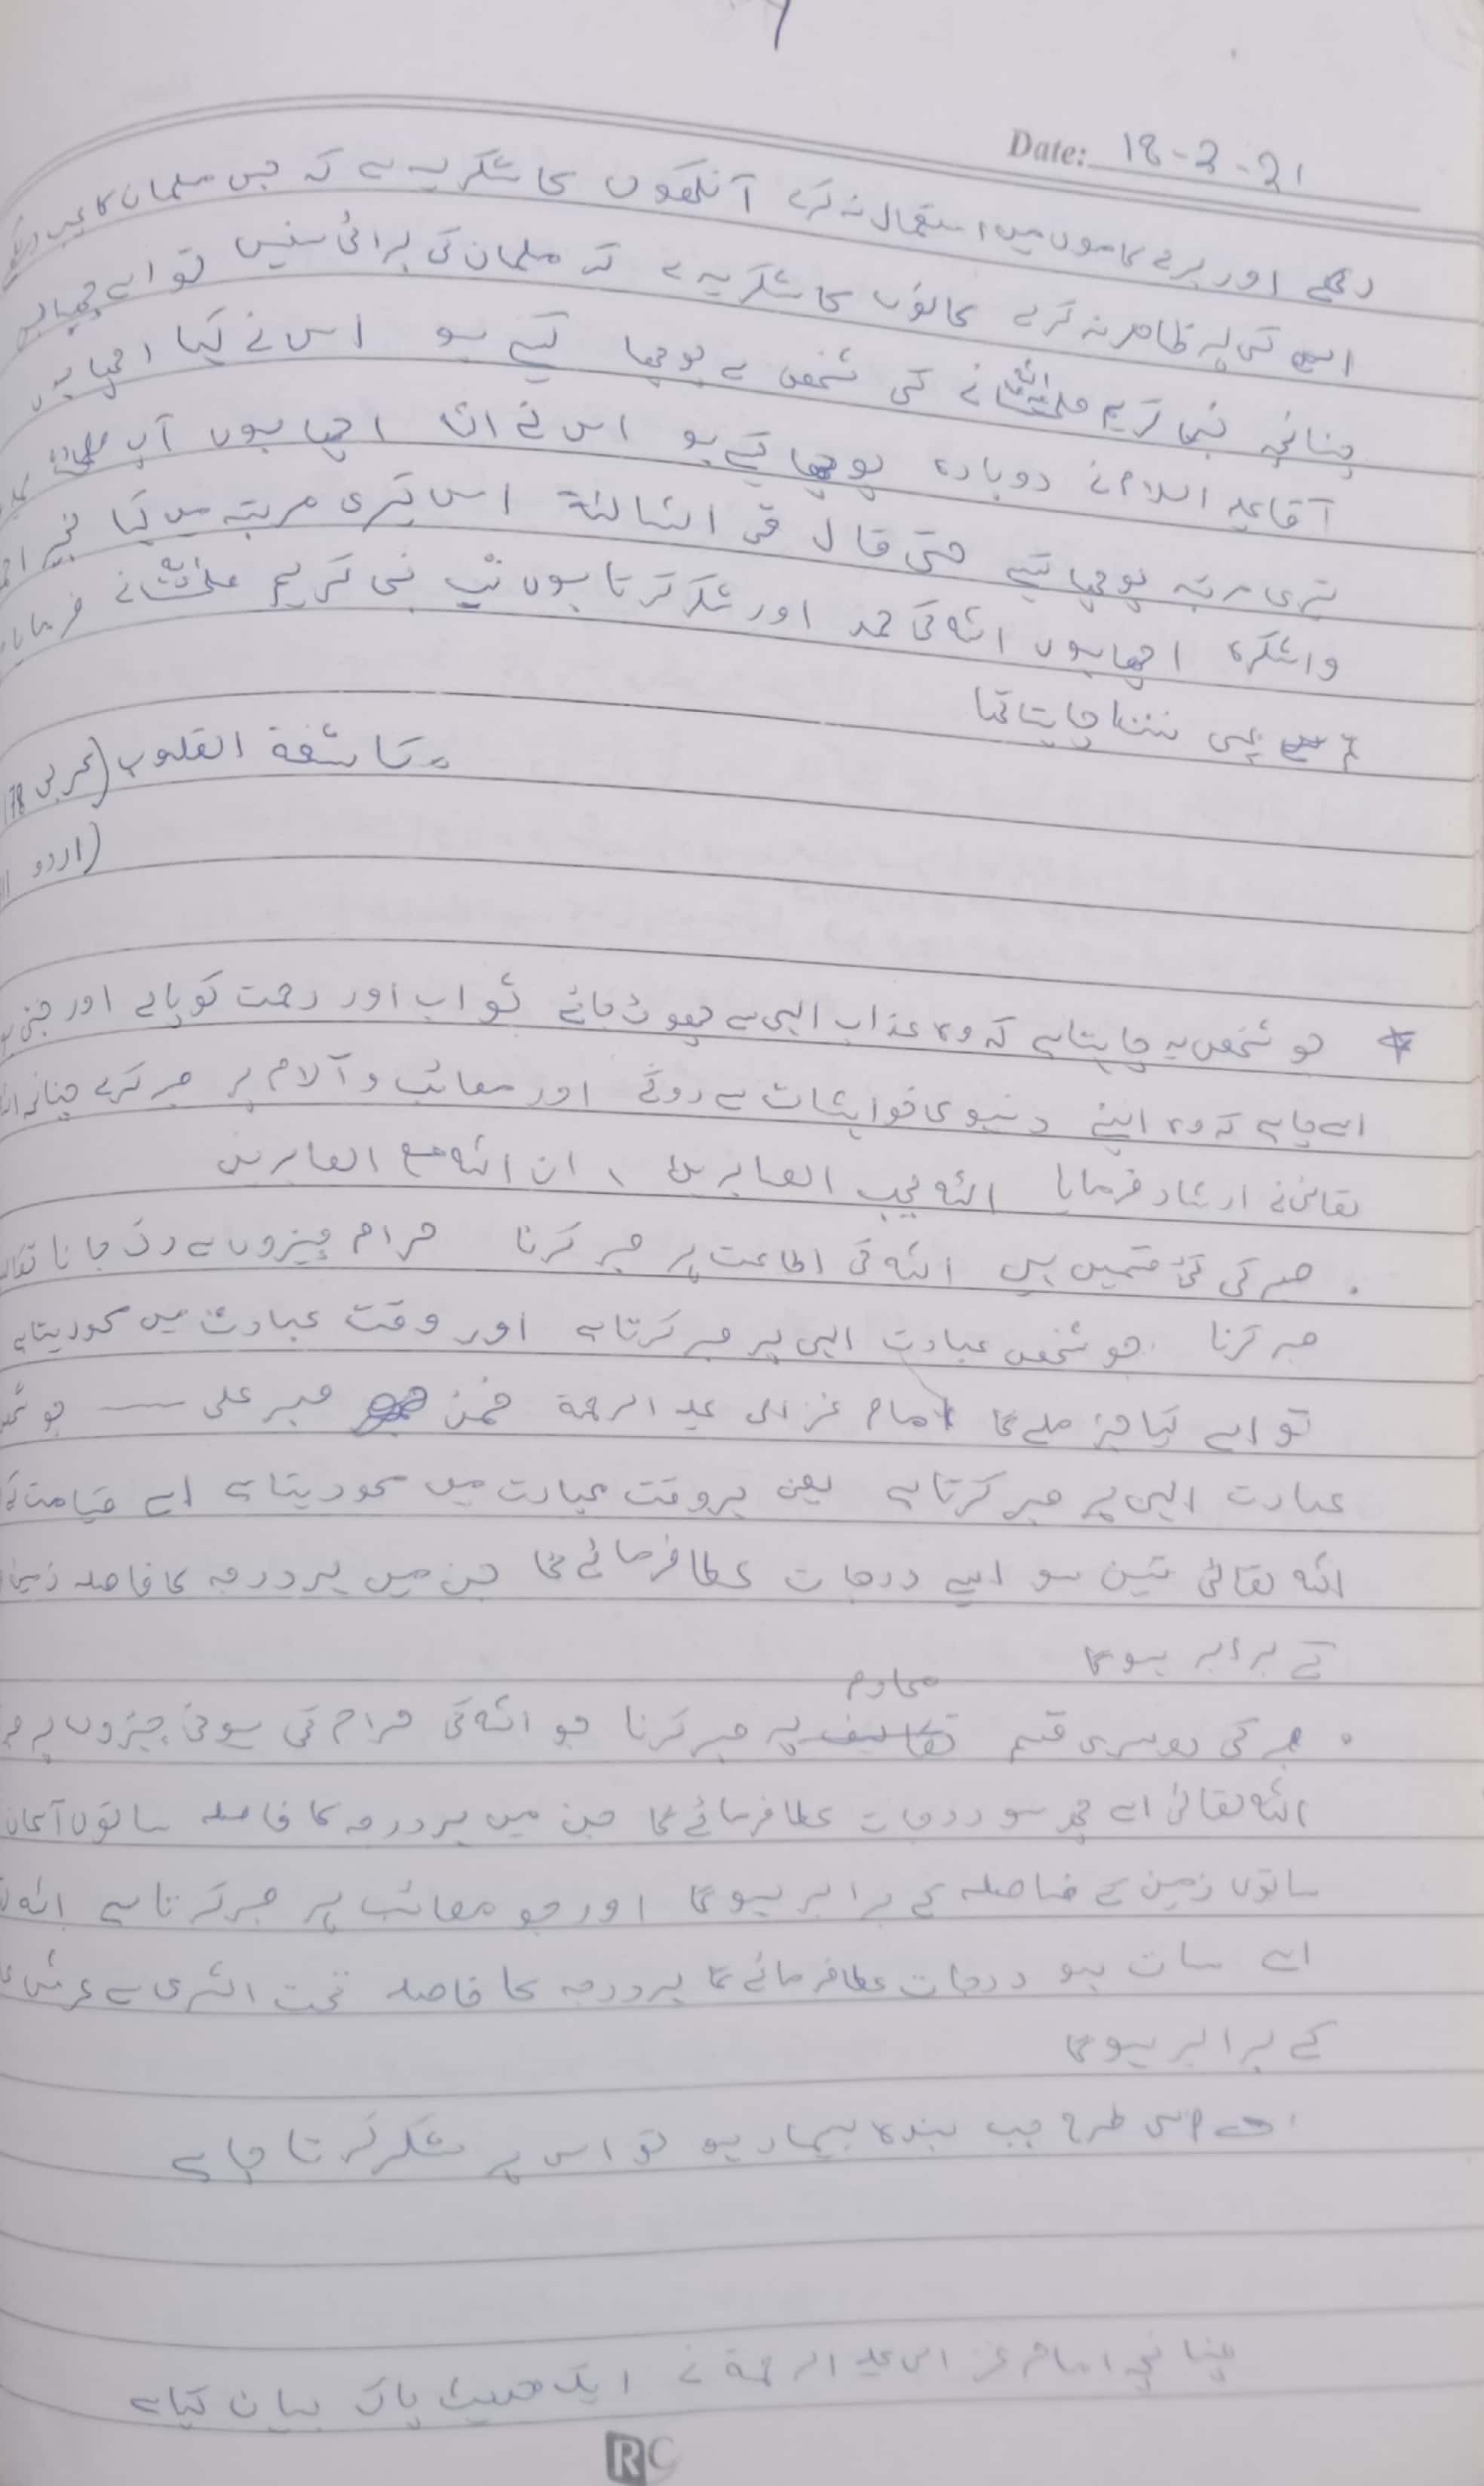 Date: 18-2-21
رکھے اور برے کاموں میں استعمال نہ کرے آنکھوں کا شکر یہ ہے کہ جس مسلمان کا عیب
اسے کسی پر ظاہر نہ کرے کانوں کا شکر یہ ہے کہ مسلمان کی برائی سنیں تو اسے چھپا
چنانچہ نبی کریم صلی اللہ نے کسی شخص سے پوچھا کیسے ہو اس نے کہا اچھا ہوں
آقا علیہ السلام نے دوبارہ پوچھا کیسے ہو اس نے کہا اچھا ہوں آپ
تیسری مرتبہ پوچھا کیسے حتی قال فی الثالثة اس تیسری مرتبہ میں کہا خیر
واشکرہ اچھا ہوں اللہ کی حمد اور شکر کرتا ہوں تب نبی کریم نے فرمایا
یہی سننا چاہتا تھا
مکاشفة القلوب (عربی 178
(اردو
* جو شخص یہ چاہتا ہے کہ وہ عذاب الہی سے چھوٹ جائے ثواب اور رحمت کو پالے اور
اسے چاہیے کہ وہ اپنے دنیوی خواہشات سے روکے اور مصائب و آلام پر صبر کرے چنانچہ
تعالی نے ارشاد فرمایا اللہ یحب الصابرین ، ان اللہ مع الصابرین
. صبر کی کئی قسمیں ہیں اللہ کی اطاعت پر صبر کرنا حرام چیزوں سے رک جانا
صبر کرنا . جو شخص عبادت الہی پر صبر کرتا ہے اور وقت عبادت میں محو رہتا ہے
تو اسے کیا ملے گا امام غزالی علیہ الرحمة فمن صبر علی —— جو
عبادت الہی پر صبر کرتا ہے یعنی ہر وقت عبادت میں محو رہتا ہے اسے قیامت کے
اللہ تعالی تین سو ایسے درجات عطا فرمائے گا جن میں ہر درجہ کا فاصلہ زمین
کے برابر ہوگا
. صبر کی دوسری قسم محارم پر صبر کرنا جو اللہ کی حرام کی ہوئی چیزوں پر
اللہ تعالی اسے چھ سو درجات عطا فرمائے گا جن میں ہر درجہ کا فاصلہ ساتوں آسمان
ساتوں زمین کے فاصلہ کے برابر ہوگا اور جو مصائب پر صبر کرتا ہے اللہ
اسے سات سو درجات عطا فرمائے گا ہر درجہ کا فاصلہ تحت الثری سے عرش
کے برابر ہوگا
اسی طرح جب بندہ بیمار ہو تو اس پر شکر کرنا چاہیے
چنانچہ امام غزالی علیہ الرحمة نے ایک حدیث پاک بیان کیا ہے
RC